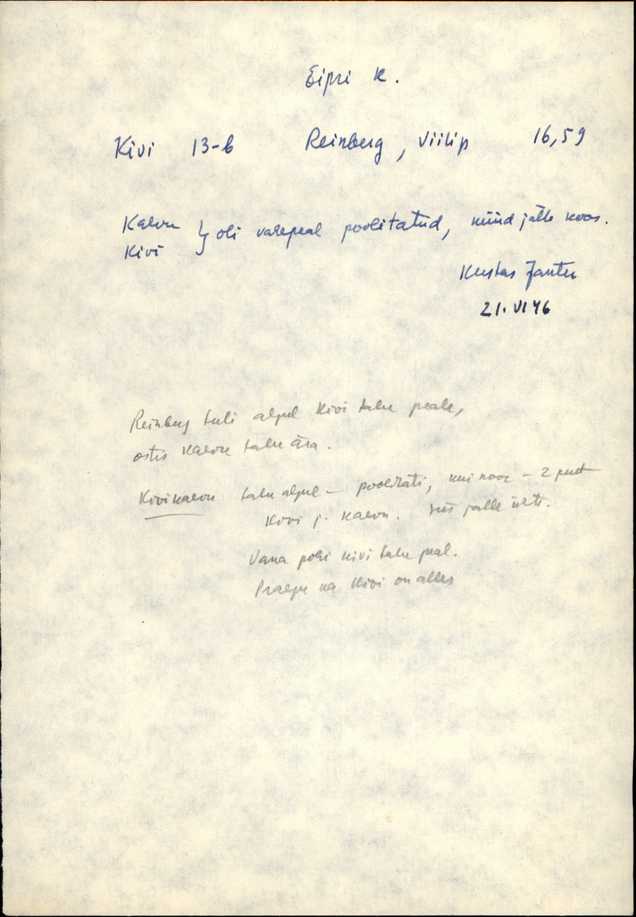 Eipri k.
Kivi 13-b Reinberg, Viilip 16,59
Kaevu
Kivi } oli vahepeal poolitatud, nüüd jälle koos.
Kustas Jantu
21.VI 46
Reinberg tuli algul Kivi talu peale,
ostis Kaevu talu ära.
Kivikaevu talu algul – poolitati, kui noor – 2 
Kivi j. Kaevu. siis jälle ühte.
Vana poeg Kivi talu peal.
Praegu ka Kivi on alles